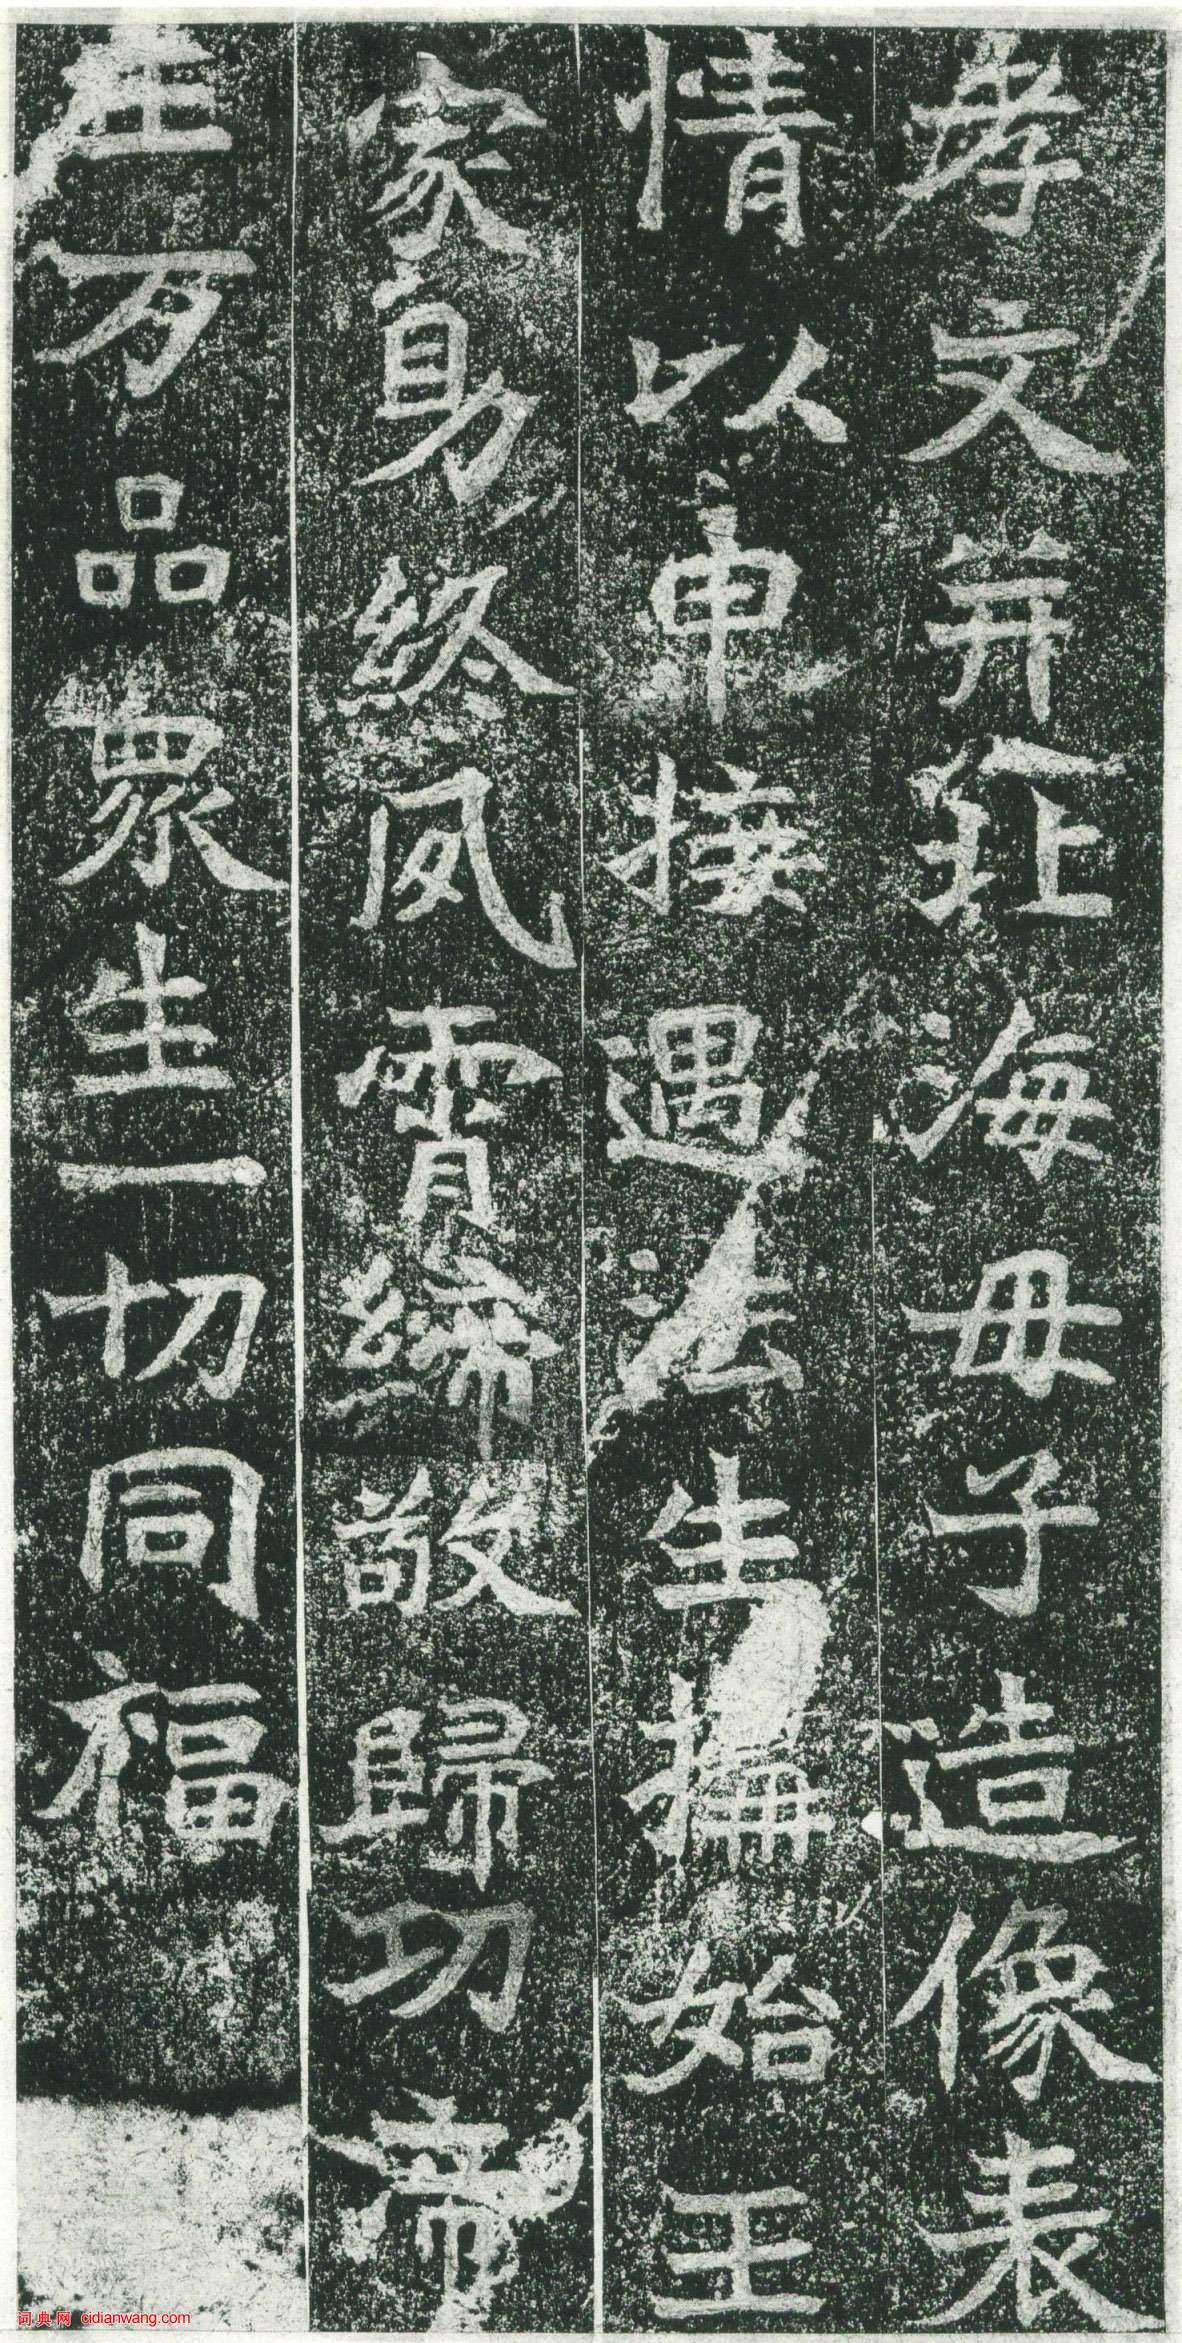 孝文并北海母子造像表
情以申接遇法生構始王
家助終夙霄締敬歸功帝
王万品衆生一切同福
词典网 cidianwang.com